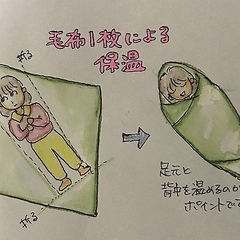 毛布1枚による
保温
折る
折る
足元と
背中を温めるのが
ポイントです